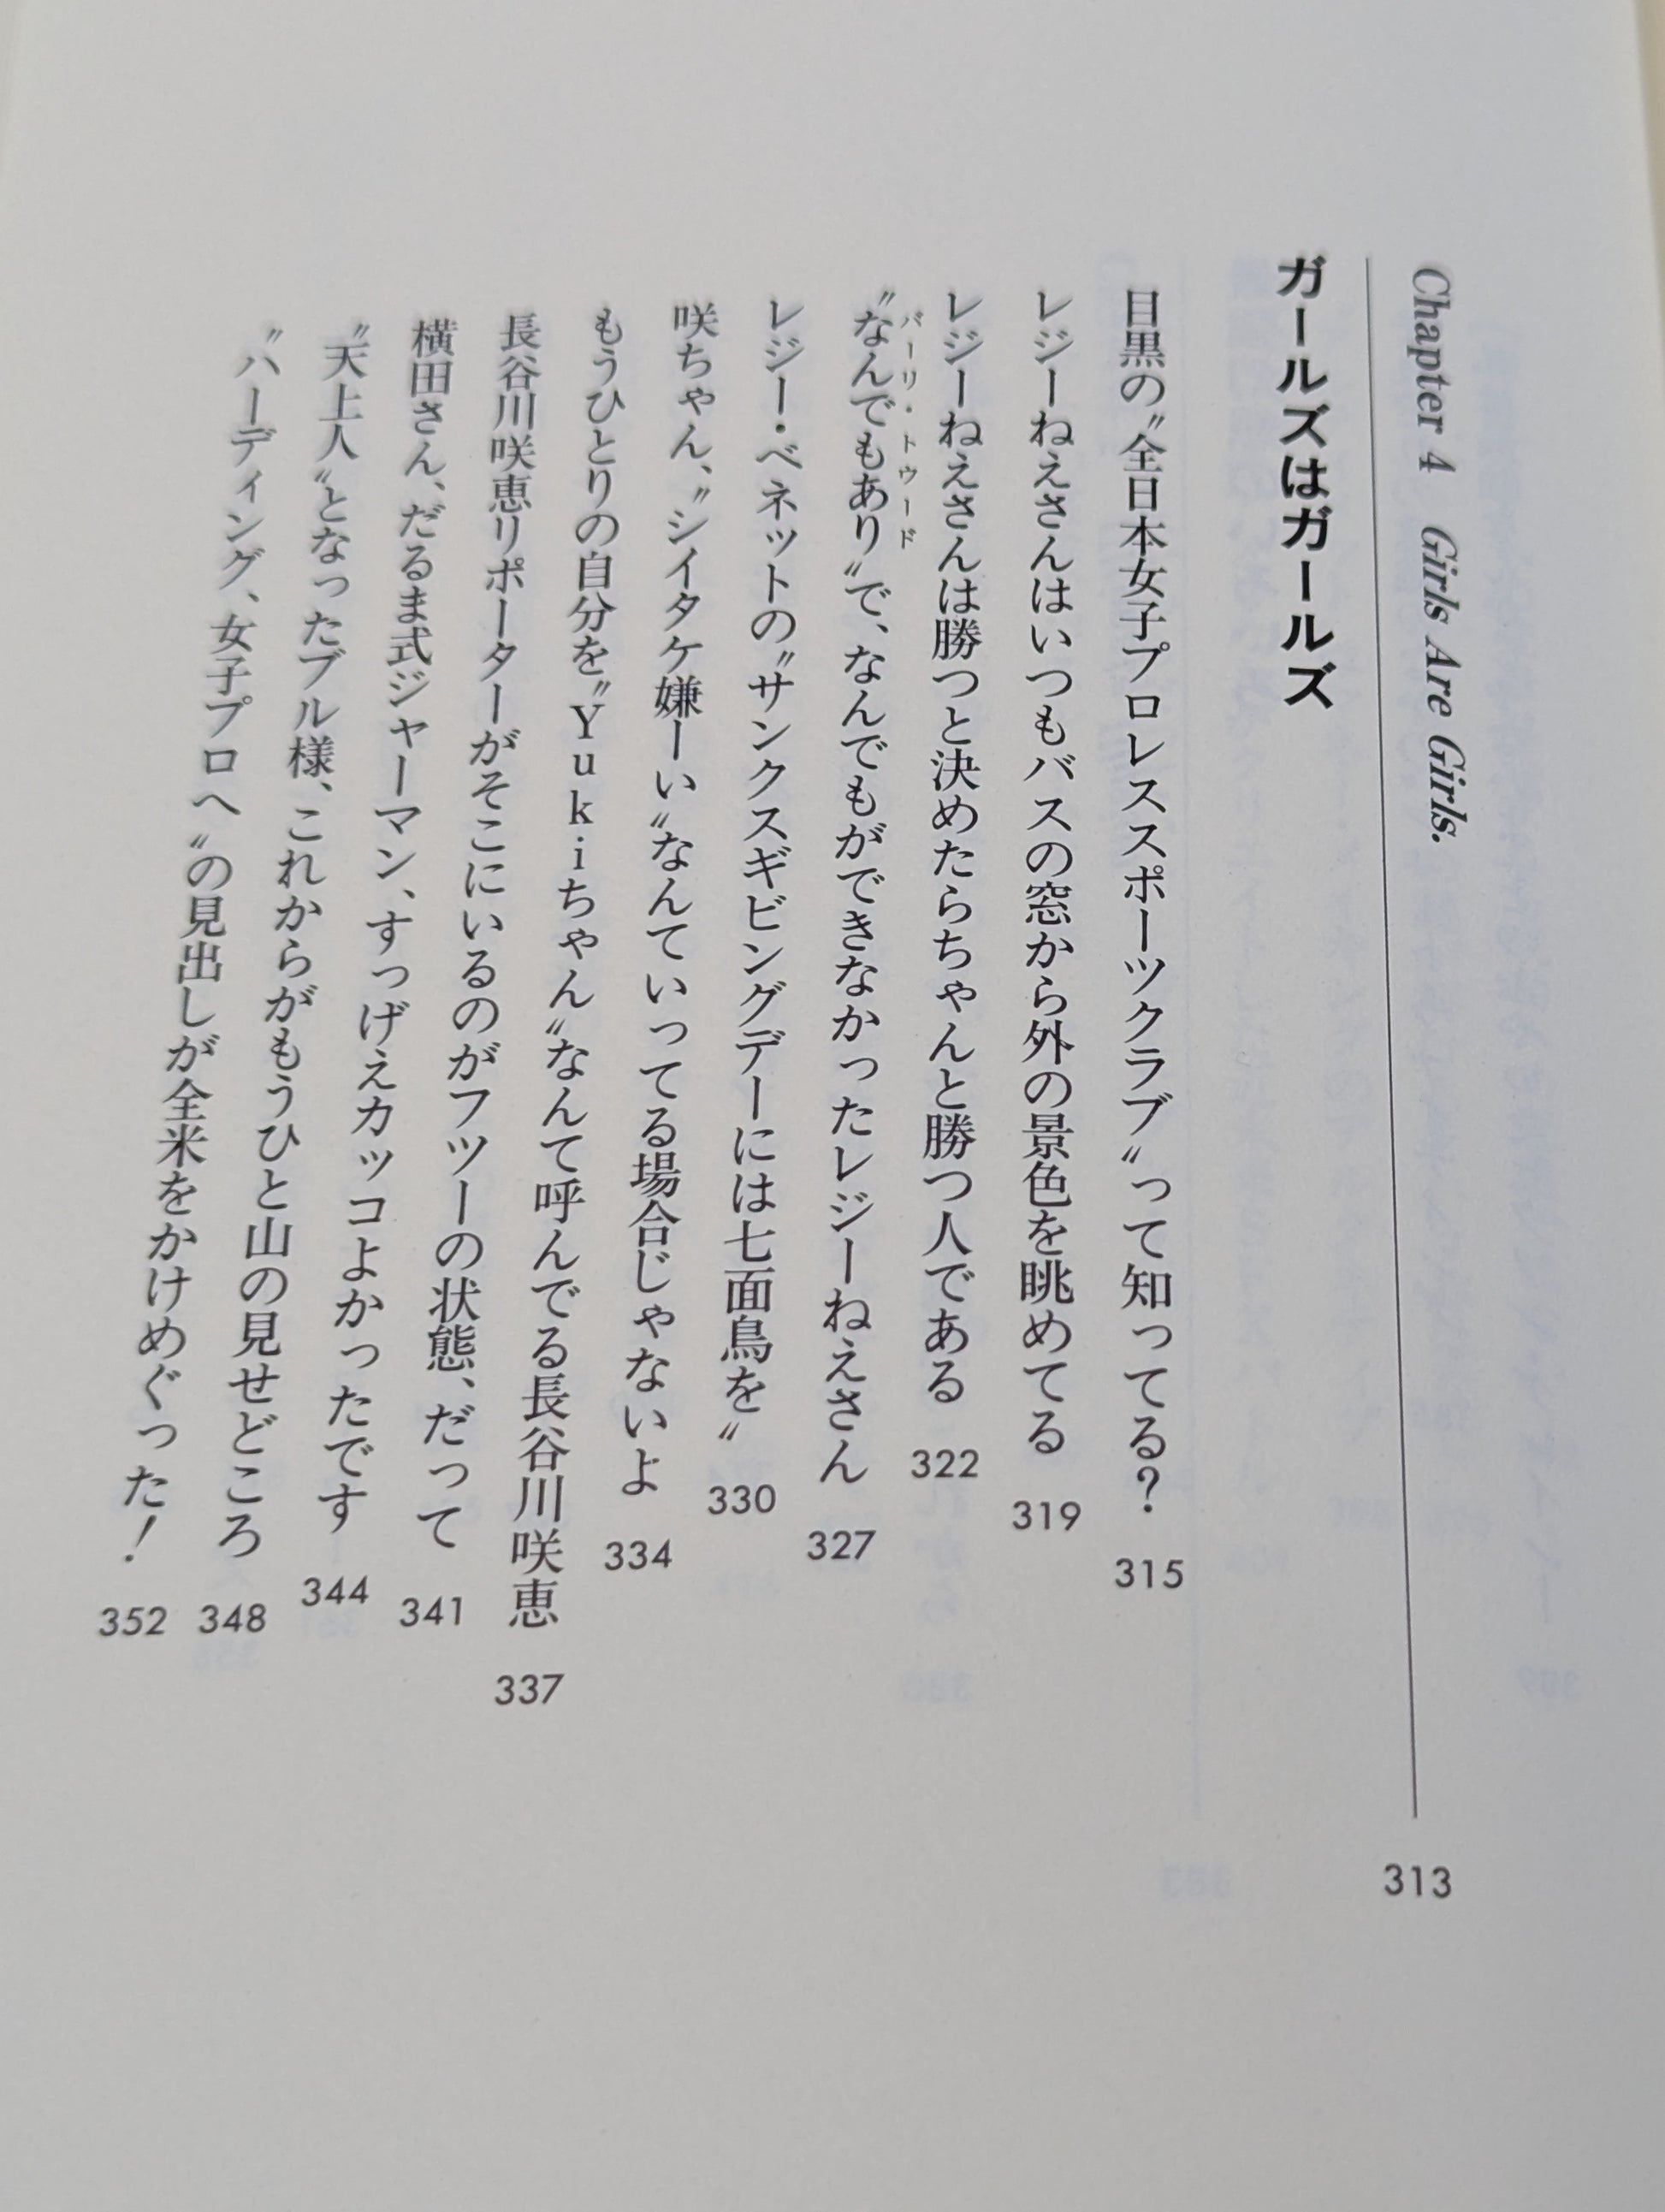 Chapter 4 Girls Are Girls. 313
ガールズはガールズ
目黒の〝全日本女子プロレススポーツクラブ〟って知ってる? 315
レジーねえさんはいつもバスの窓から外の景色を眺めてる 319
レジーねえさんは勝つと決めたらちゃんと勝つ人である 322
バーリ・トウード
〝なんでもあり〟で、なんでもができなかったレジーねえさん 327
レジー・ベネットの〝サンクスギビングデーには七面鳥を〟 330
咲ちゃん、〝シイタケ嫌ーい〟なんていってる場合じゃないよ 334
もうひとりの自分を〝Yukiちゃん〟なんて呼んでる長谷川咲恵 337
長谷川咲恵リポーターがそこにいるのがフツーの状態、だって 341
横田さん、だるま式ジャーマン、すっげえカッコよかったです 344
〝天上人〟となったブル様、これからがもうひと山の見せどころ 348
〝ハーディング、女子プロへ〟の見出しが全米をかけめぐった! 352